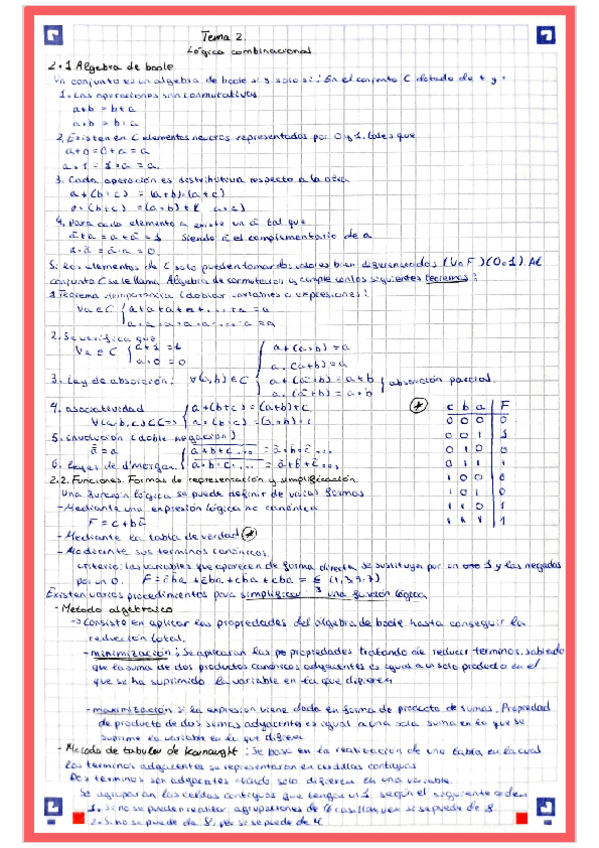 Tema 2.
Lógica combinacional
2.1 Algebra de boole
Un conjunto es un algebra de boole si y solo si: En el conjunto C dotado de + y ·
1. Las operaciones son conmutativas
a+b = b+a
a·b = b·a
2. Existen en C elementos neutros representados por 0 y 1, tales que
a+0=0+a = a
a·1 = 1·a = a
3. Cada operación es distributiva respecto a la otra
a+(b·c) = (a+b)·(a+c)
a·(b+c) = (a·b)+( a·c)
4. Para cada elemento a existe un ā tal que
ā+a = a+ā = 1 Siendo ā el complementario de a
a·ā = ā·a = 0
Si los elementos de C solo pueden tomar dos valores bien diferenciados (V o F) (0 o 1). Al
conjunto C se le llama Algebra de conmutación y cumple con los siguientes teoremas:
1 Teorema idempotencia (doblar variables o expresiones):
∀a∈C { a+a+a+a+...+a = a
a·a·a·a·a·...·a = a
2. Se verifica que
∀a∈C { a+1 = 1
a·0 = 0
3. Ley de absorción: ∀(a,b)∈C { a+(a·b) = a
a·(a+b) = a
a+(ā·b) = a+b
a·(ā+b) = a·b } absorción parcial
4. asociatividad { a+(b+c) = (a+b)+c
∀(a,b,c)∈C => a·(b·c) = (a·b)·c
5. involución (doble negación)
6. Leyes de d'morgan
2.2. Funciones. Formas de representación y simplificación
Una función lógica se puede definir de varias formas
- Mediante una expresión lógica no canónica
F = c+bā
- Mediante la tabla de verdad *
- Mediante sus terminos canónicos.
criterio: las variables que aparecen de forma directa se sustituyen por un 1 y las negadas
por un 0.
Existen varios procedimientos para simplificar una función lógica
- Metodo algebraico
-> Consiste en aplicar las propiedades del álgebra de boole hasta conseguir la
reducción total.
- minimización: Se aplicaran las propiedades tratando de reducir terminos, sabiendo
que la suma de dos productos canónicos adyacentes es igual a un solo producto en el
que se ha suprimido la variable en la que difieren
- maximización si la expresión viene dada en forma de producto de sumas. Propiedad
de producto de dos sumas adyacentes es igual a una sola suma en la que se
suprime la variable en la que difiere
- Metodo de tablas de Karnaught: Se basa en la realización de una tabla en la cual
los terminos adyacentes se representaran en casillas contiguas
Dos terminos son adyacentes cuando solo difieren en una variable.
Se agruparan las celdas contiguas que tengan un 1 según el siguiente orden
1. Si no se pueden realizar agrupaciones de 16 casillas ver si se puede de 8
2. Si no se puede de 8, ver si se puede de 4
*
c b a F
0 0 0 0
0 0 1 1
0 1 0 0
0 1 1 1
1 0 0 0
1 0 1 0
1 1 0 1
1 1 1 1